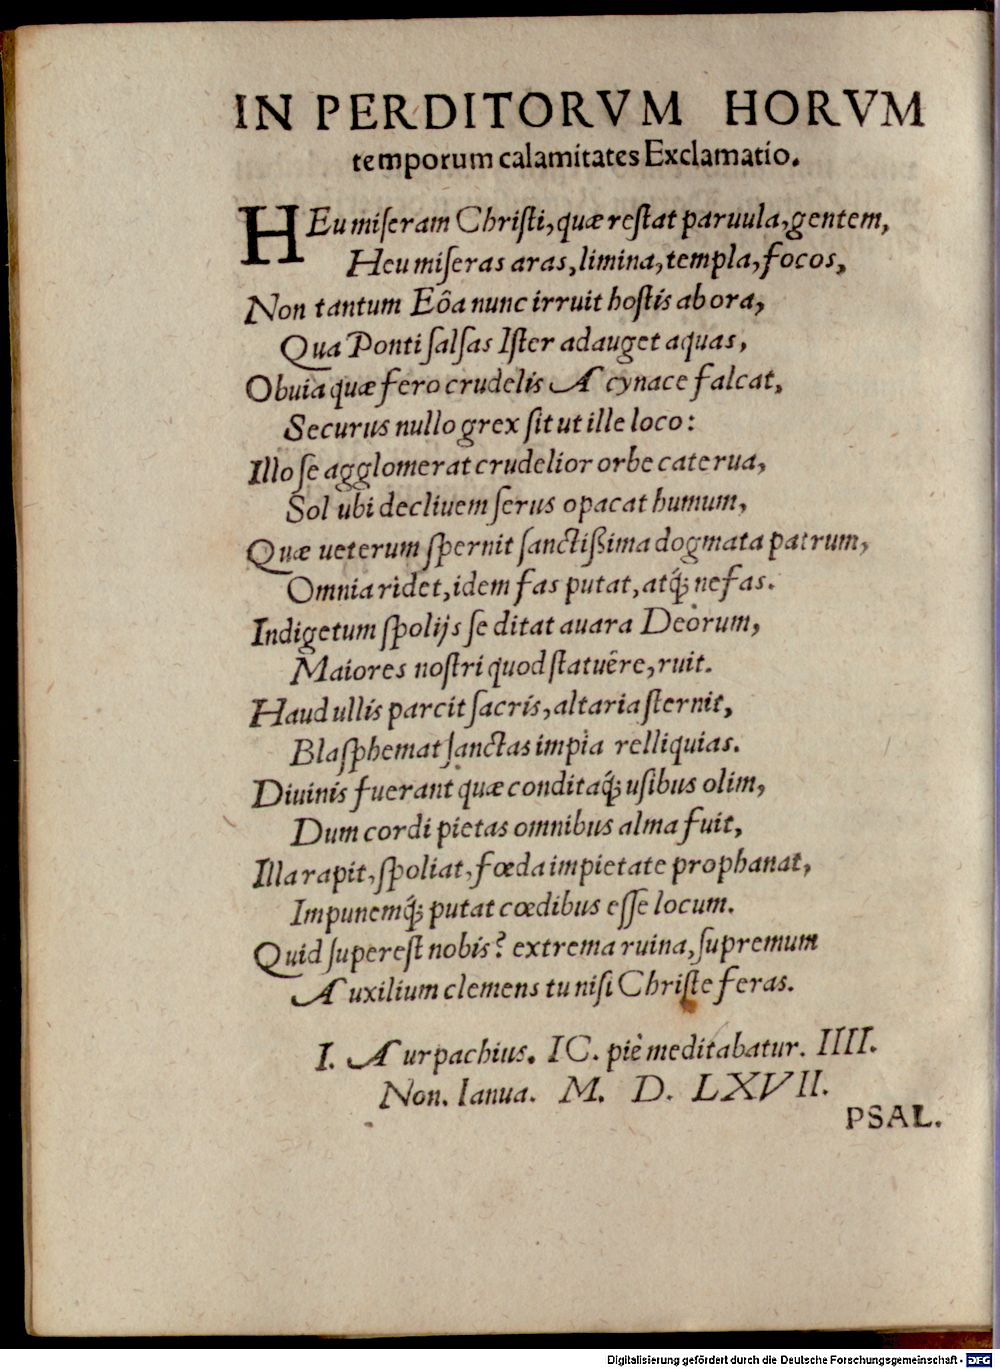 IN PERDITORVM HORVM
temporum calamitates Exclamatio.
HEu miſeram Chriſti, quæ reſtat paruula, gentem,
Heu miſeras aras, limina, templa, focos,
Non tantum Eôa nunc irruit hoſtis ab ora,
Qua Ponti ſalſas Iſter adauget aquas,
Obuia quæ fero crudelis Acynace falcat,
Securus nullo grex ſit ut ille loco:
Illo ſe agglomerat crudelior orbe caterua,
Sol ubi decliuem ſerus opacat humum,
Quæ ueterum ſpernit ſanctißima dogmata patrum,
Omnia ridet, idem fas putat, atq́; nefas.
Indigetum ſpolijs ſe ditat auara Deorum,
Maiores noſtri quod ſtatuêre, ruit.
Haud ullis parcit ſacris, altaria ſternit,
Blaſphemat ſanctas impia relliquias.
Diuinis fuerant quæ conditaq́; uſibus olim,
Dum cordi pietas omnibus alma fuit,
Illa rapit, ſpoliat, fœda impietate prophanat,
Impunemq́; putat cœdibus eſſe locum.
Quid ſupereſt nobis? extrema ruina, ſupremum
Auxilium clemens tu niſi Chriſte feras.
I. Aurpachius. IC. piè meditabatur. IIII.
Non. Ianua. M. D. LXVII.
PSAL.
Digitalisierung gefördert durch die Deutsche Forschungsgemeinschaft - DFG